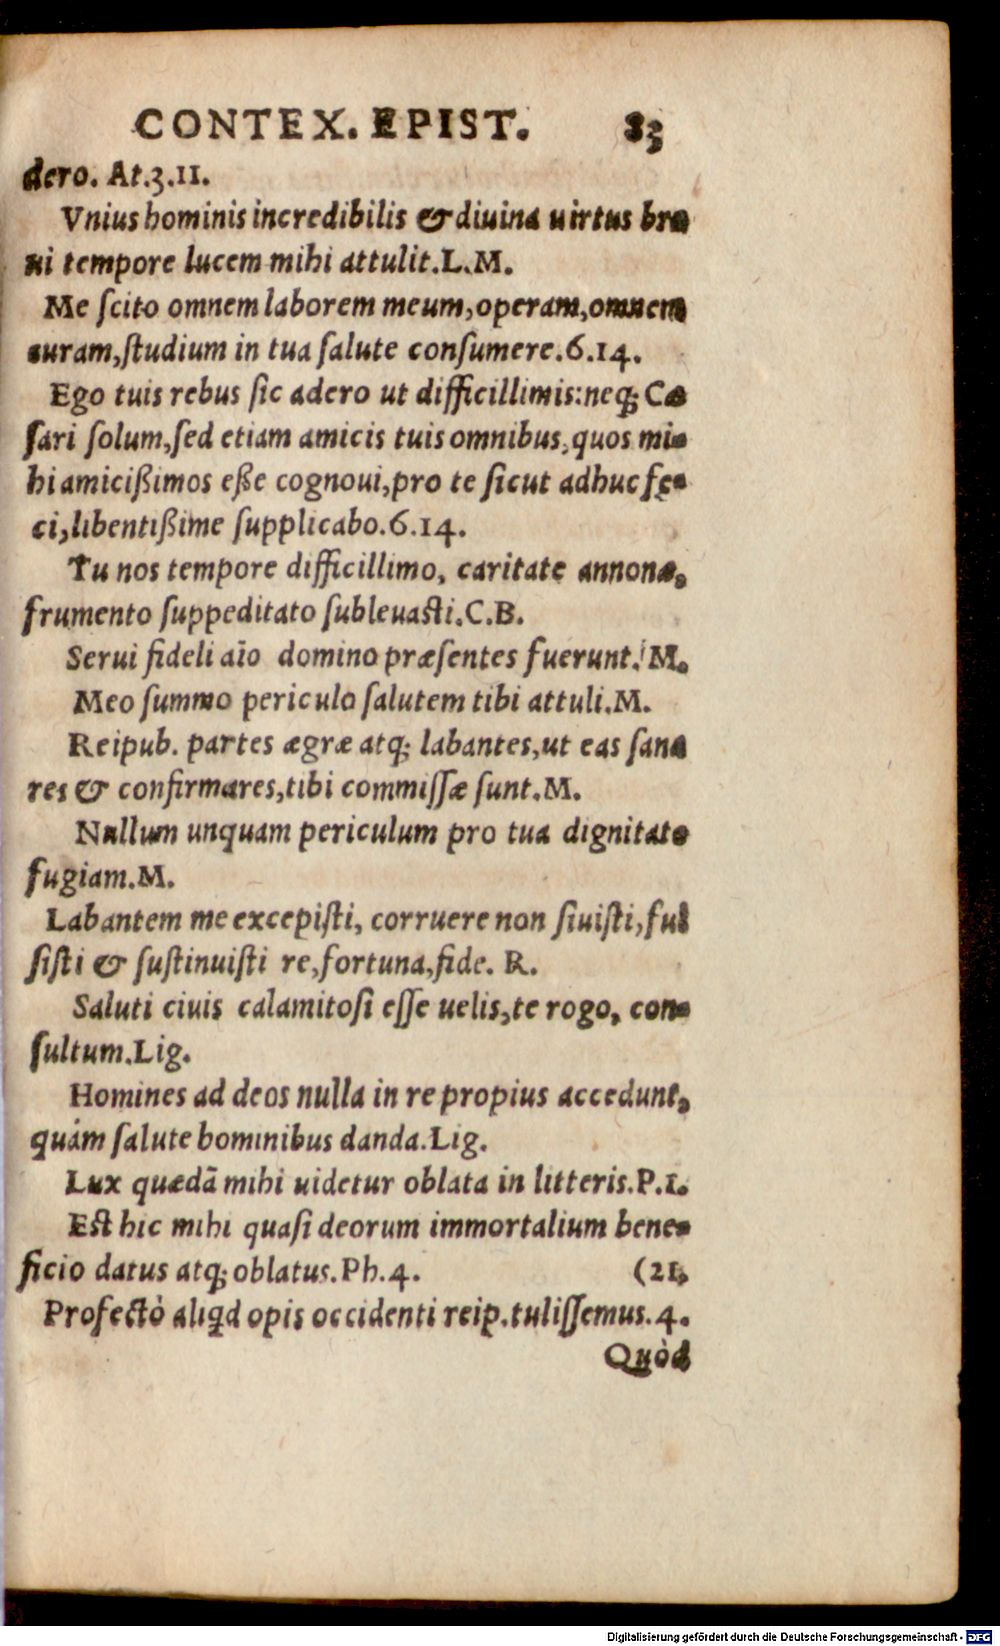 CONTEX. EPIST. 83
dero. At.3.11.
Vnius hominis incredibilis & diuina uirtus bre
ui tempore lucem mihi attulit.L.M.
Me ſcito omnem laborem meum,operam,omnem
curam,ſtudium in tua ſalute conſumere.6.14.
Ego tuis rebus ſic adero ut difficillimis:neq; Cæ
ſari ſolum,ſed etiam amicis tuis omnibus,quos mi-
hi amicißimos eße cognoui,pro te ſicut adhuc fe-
ci,libentißime ſupplicabo.6.14.
Tu nos tempore difficillimo, caritate annonæ,
frumento ſuppeditato ſubleuaſti.C.B.
Serui fideli aīo domino præſentes fuerunt. M.
Meo ſummo periculo ſalutem tibi attuli.M.
Reipub. partes ægræ atq; labantes,ut eas ſana
res & confirmares,tibi commiſſæ ſunt.M.
Nullum unquam periculum pro tua dignitate
fugiam.M.
Labantem me excepiſti, corruere non ſiuiſti,ful
ſiſti & ſuſtinuiſti re,fortuna,fide. R.
Saluti ciuis calamitoſi eſſe uelis,te rogo, con-
ſultum.Lig.
Homines ad deos nulla in re propius accedunt,
quàm ſalute hominibus danda.Lig.
Lux quædā mihi uidetur oblata in litteris.P.1.
Eſt hic mihi quaſi deorum immortalium bene-
ficio datus atq; oblatus.Ph.4. (21,
Profectò aliqd opis occidenti reip.tuliſſemus.4.
Quòd
Digitalisierung gefördert durch die Deutsche Forschungsgemeinschaft - DFG